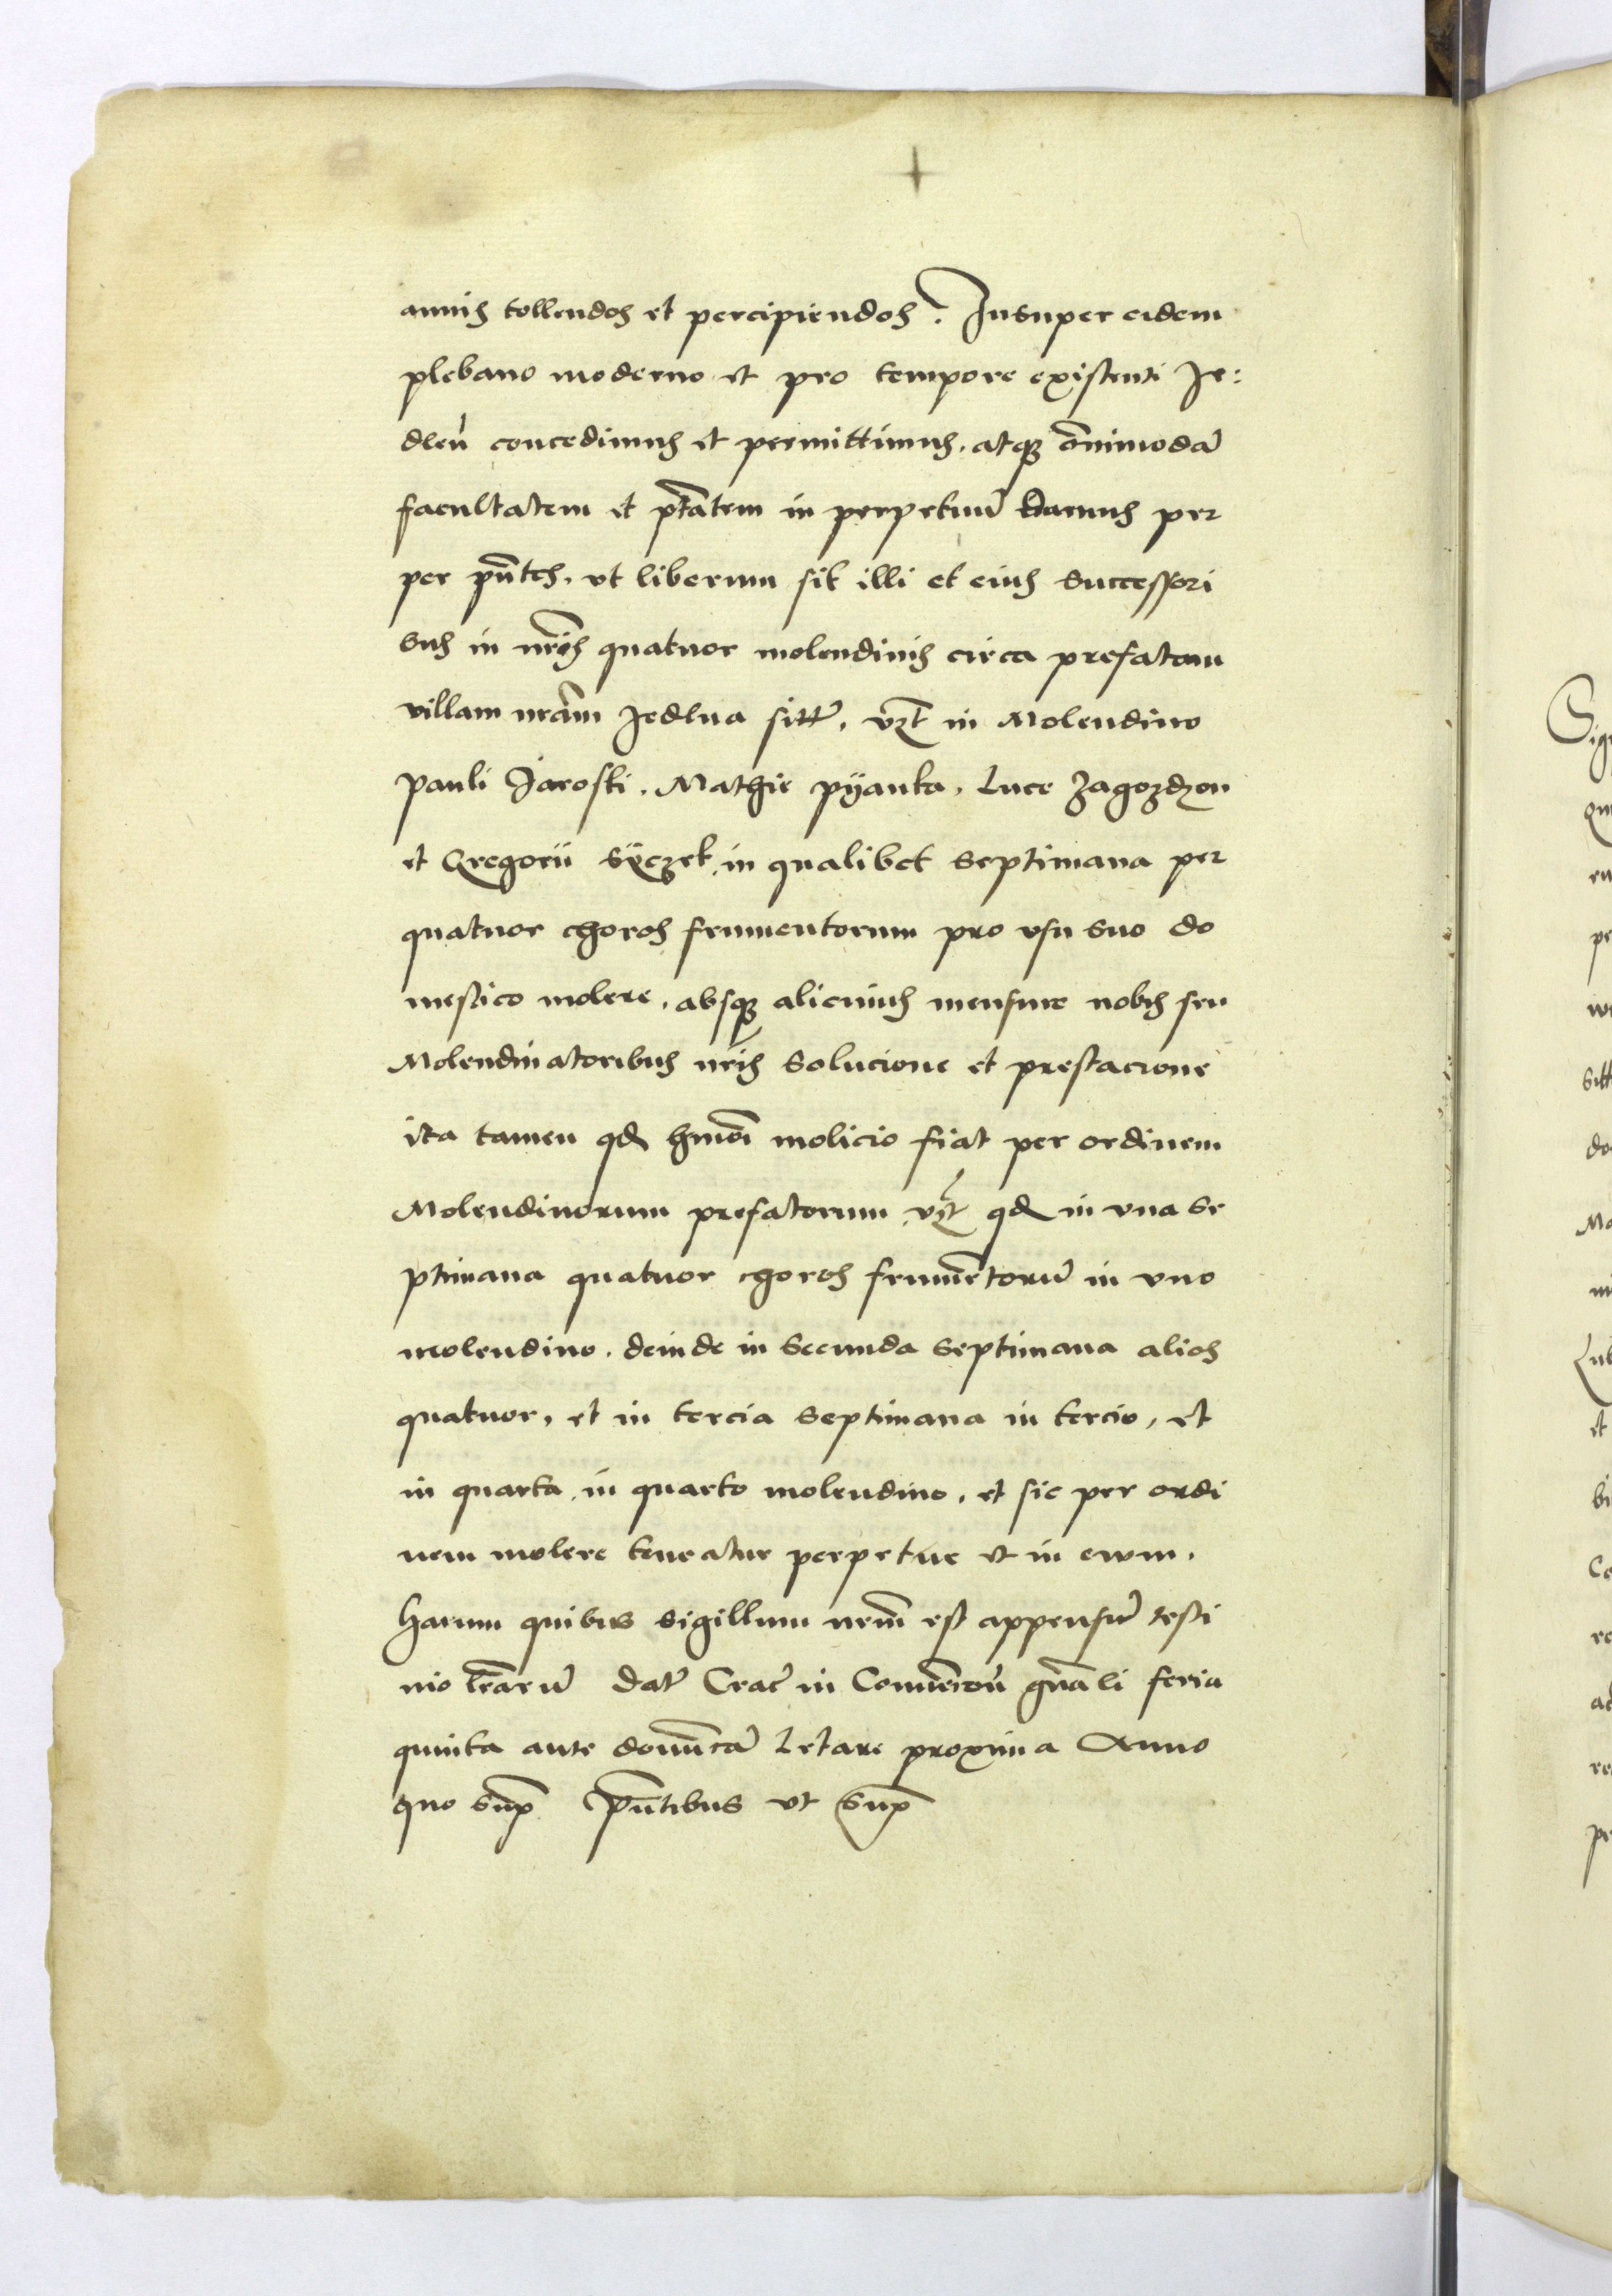 annis tollendos et percipiendos. Insuper eidem
plebano moderno et pro tempore existenti Je:
dlen̄ concedimus et permittimus. atqꝫ ōnimodā
facultatem et ptātem in perpetuū Damus per
per pn̄tes, vt liberum sit illi et eius successori
bus in nr̄is quatuor molendinis circa prefatam
villam nrām Jedlna sitt̄. vzt in Molendino
Pauli Jaroski. Mathie pyanka. Luce Zagozdzon
et Gregorii Syczek in qualibet septimana per
quatuor choros frumentorum pro vsu suo do
mestico molere. absqꝫ alicuius mensure nobis seu
Molendinatoribus nr̄is solucione et prestacione
ita tamen qd hmōi molicio fiat per ordinem
Molendinorum prefatorum vzt qd in vna se
ptimana quatuor choros frumētorū in vno
molendino. deinde in secunda septimana alios
quatuor, et in tercia septimana in tercio, et
in quarta in quarto molendino. et sic per ordi
nem molere teneatur perpetue et in ewm.
Harum quibus sigillum nrm̄ est appensū testi
nio lrārū Dat̄ Crac̄ in Conuēcōn̄ gnāli feria
quinta ante domīcā Letare proxima Anno
quo sup̄ Pn̄tibus vt sup̄